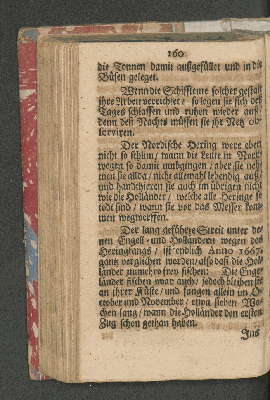 160
die Tonnen damit außgefüllet und in die
Büsen geleget.
Wenn die Schiffleute solcher gestalt
ihre Arbeit verrichtet / so legen sie sich des
Tages schlaffen und ruhen wieder auß /
denn deß Nachts müssen sie ihr Netz ob-
serviren.
Der Nordische Hering were eben
nicht so schlim / wann die Leute im Norden
wegen so damit umbgiengen / aber sie neh-
men sie allda / nicht allewahl lebendig auß /
und handthieren sie auch im übrigen nicht
wie die Holländer / welche alle Heringe so
todt sind / wann sie vor das Messer kom-
men wegwerffen.
Der lang geführte Streit unter de-
nen Engell- und Holländern wegen des
Heringfangs / ist endlich Anno 1667.
gantz verglichen worden / also daß die Hol-
länder nunmehro frey fischen: Die Enge-
länder fischen zwar auch / jedoch bleiben sie
an ihrer Küste / und fangen allein im Oc-
tober und November / etwa sieben Wo-
chen lang / wann die Holländer den ersten
Zug schon gethan haben.